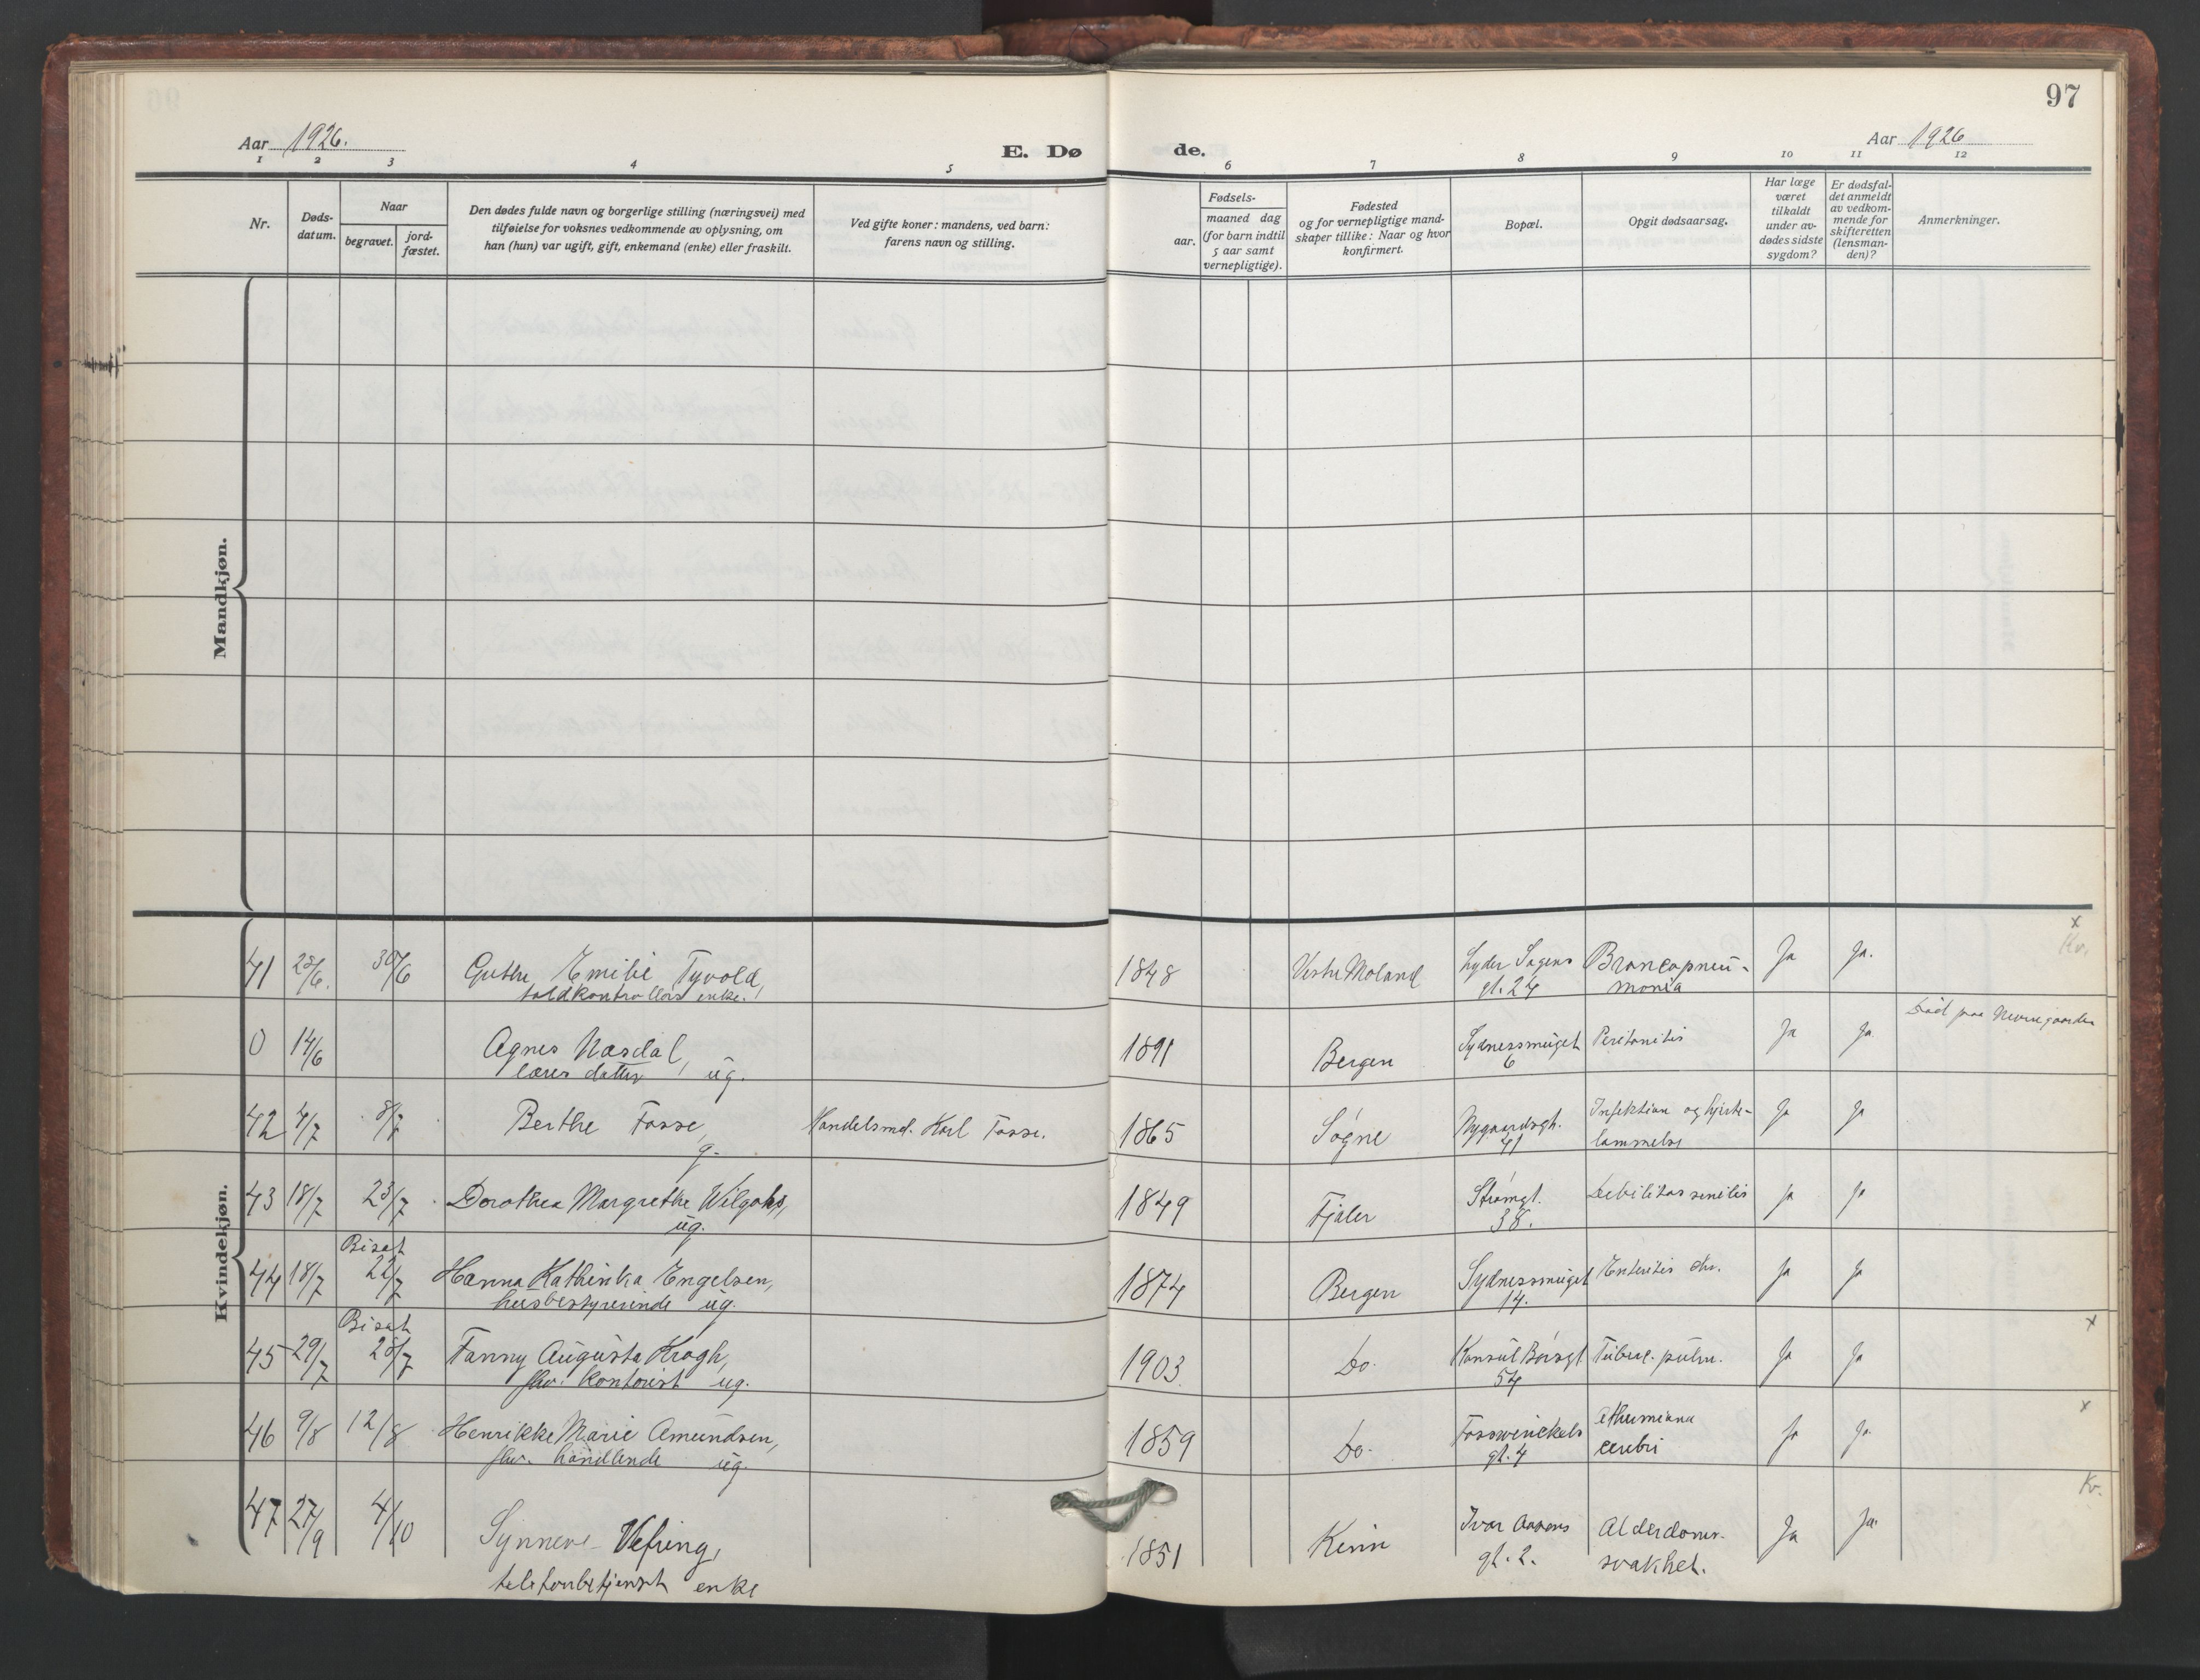 97
Aar 1926.
E. Dø
de.
Aar 1926
1 2 3 4 5 6 7 8 9 10 11 12
Nr.
Døds-
datum.
Naar
begravet.
jord-
fæstet.
Den dødes fulde navn og borgerlige stilling (næringsvei) med
tilføielse for voksnes vedkommende av oplysning, om
han (hun) var ugift, gift, enkemand (enke) eller fraskilt.
Ved gifte koner: mandens, ved barn:
farens navn og stilling.
aar.
Fødsels-
maaned dag
(for barn indtil
5 aar samt
vernepligtige).
Fødested
og for vernepligtige mand-
skaper tillike: Naar og hvor
konfirmert.
Bopæl.
Opgit dødsaarsag.
Har læge
været
tilkaldt
under av-
dødes sidste
sygdom?
Er dødsfal-
det anmeldt
av vedkom-
mende for
skifteretten
(lensman-
den)?
Anmerkninger.
Mandkjøn.
Kvindekjøn.
x
Kv.
41 30/6 Emilie Tyvold, 1848 Vestre Moland Lyder Sagens Ja Ja.
toldkontrollørs enke. gt. 24 monia
0 14/6 Agnes Næsdal, 1891 Bergen Sydnessmuget Peritonitis Ja Ja
datter ug. 6
42 4/7 8/7 Berthe Fosse, Handelsmd. Karl Fosse. 1865 Søgne Nygaardsgt. Infektion og hjerte- Ja Ja
g. 41 lammelse
43 18/7 23/7 Dorothea Margrethe 1849 Fjaler Strømgt. Debilitas senilis Ja Ja
ug. 38.
Bisat
44 18/7 22/7 Hanna Kathinka Engelsen, 1874 Bergen Sydnessmuget Enteritis chr. Ja Ja
husbestyrerinde ug. 14.
Bisat
x
45 29/7 28/7 Fanny Augusta Krogh, 1903 Do. Konsul Børsgt Tuberc. pulm. Ja Ja
fhv. kontorist ug. 54
x
46 9/8 12/8 Henrikke Marie Amundsen, 1859 Do. Fosswinckels Ja Ja
fhv. handlende ug. gt. 4 cerebri
Kv.
47 27/9 4/10 Synneve Vefring, 1851 Kinn Ivar Aasens Alderdoms- Ja Ja.
telefonbetjent enke gt. 2. svakhet.